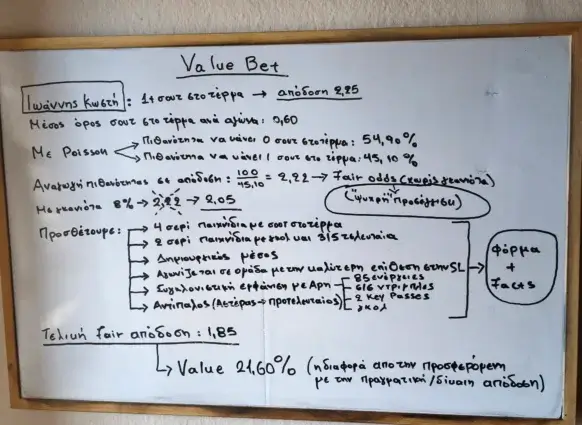 Value Bet
Ιωάννης Κωστή : 1+ σουτ στο τέρμα → απόδοση 2,25
Μέσος όρος σουτ στο τέρμα ανά αγώνα : 0,60
Με Poisson
Πιθανότητα να κάνει 0 σουτ στο τέρμα : 54,90%
Πιθανότητα να κάνει 1 σουτ στο τέρμα : 45,10%
Αναγωγή πιθανότητας σε απόδοση : 100/45,10 = 2,22 → Fair odds (χωρίς γκανιότα)
Με γκανιότα 8% → 2,22 → 2,05
("ψυχρή" προσέγγιση)
Προσθέτουμε :
4 σερί παιχνίδια με σουτ στο τέρμα
2 σερί παιχνίδια με γκολ και 3/5 τελευταία
Δημιουργικός μέσος
Αγωνίζεται σε ομάδα με την καλύτερη επίθεση στην SL
Συγκλονιστική εμφάνιση με Άρη
85 ενέργειες
6/6 ντρίμπλες
2 Key Passes
γκολ
Αντίπαλος (Αστέρας → προτελευταίος)
Φόρμα + Facts
Τελική fair απόδοση : 1,85
Value 21,60% (η διαφορά από την προσφερόμενη
με την πραγματική/δίκαιη απόδοση)